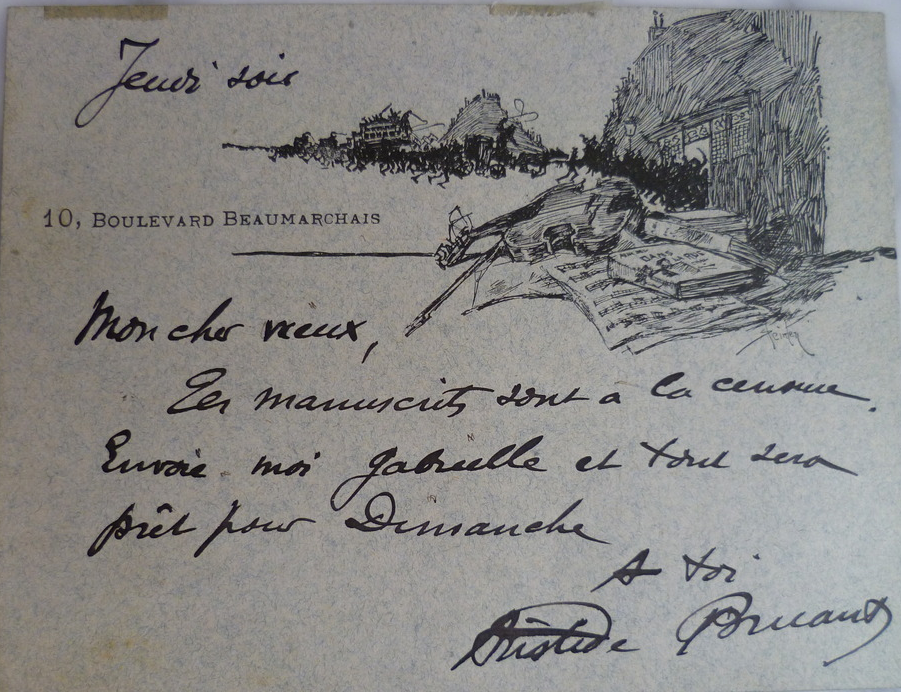 Jeudi soir
10, BOULEVARD BEAUMARCHAIS
Mon cher vieux,
Les manuscrits sont a la censure.
Envoie moi Gabrielle et tout sera
prêt pour Dimanche
A toi
Aristide Bruant